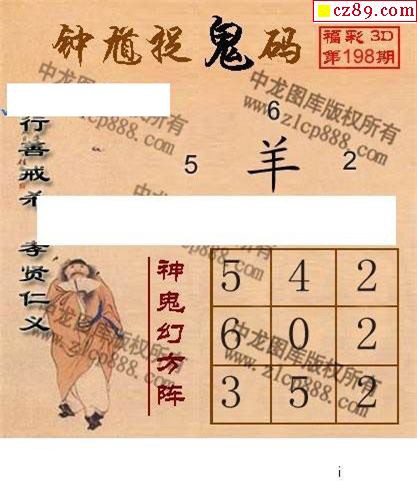 cz89.com
钟馗捉鬼码
福彩3D
第198期
中龙图库版权所有
www.zlcp888.com
行善戒杀
孝贤仁义
6
5 羊 2
神鬼幻方阵
5 4 2
6 0 2
3 5 2
中龙图库版权所有
www.zlcp888.com
i